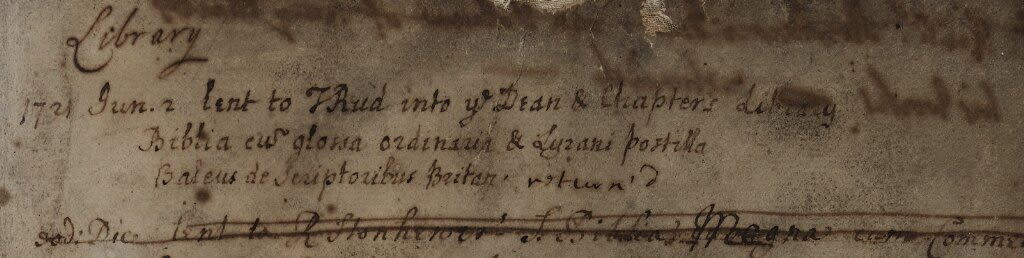 Library
1721 Jun. 2 lent to TRud into yᵉ Dean & Chapters Library
Biblia cū glossa ordinaria & Lyrani postilla
Baleus de Scriptoribus Britan. return'd
eod: Die. lent to R Stonhewer Biblia Magna cum Comme